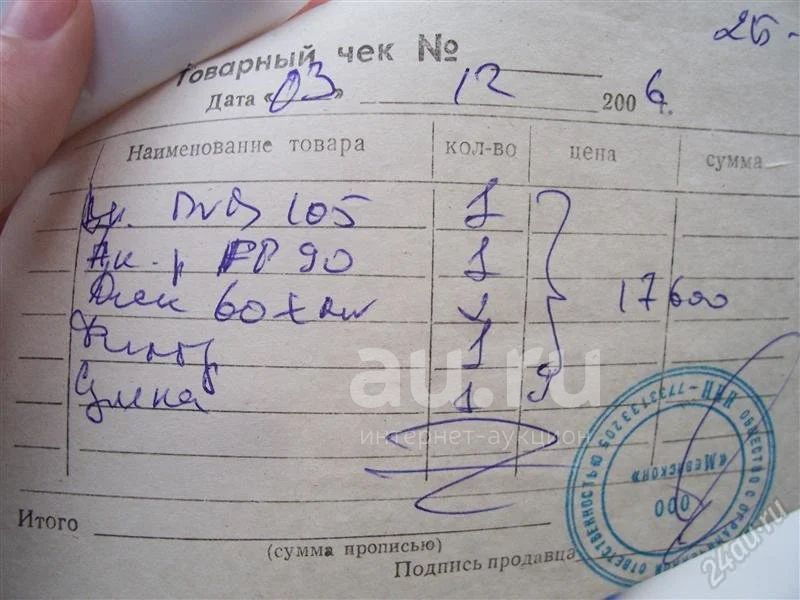 Товарный чек №
Дата «03» 12 2006 г.
Наименование товара кол-во цена сумма
DVD 105 1
Ак-р FP 90 1
Диск 60 1
17600
Фильтр 1
Сумка 1
au.ru
интернет-аукцион
Итого
(сумма прописью)
Подпись продавца
ИНН 7733713320
ОБЩЕСТВО С ОГРАНИЧ ОТВЕТСТВЕННОСТЬЮ
ООО
24au.ru